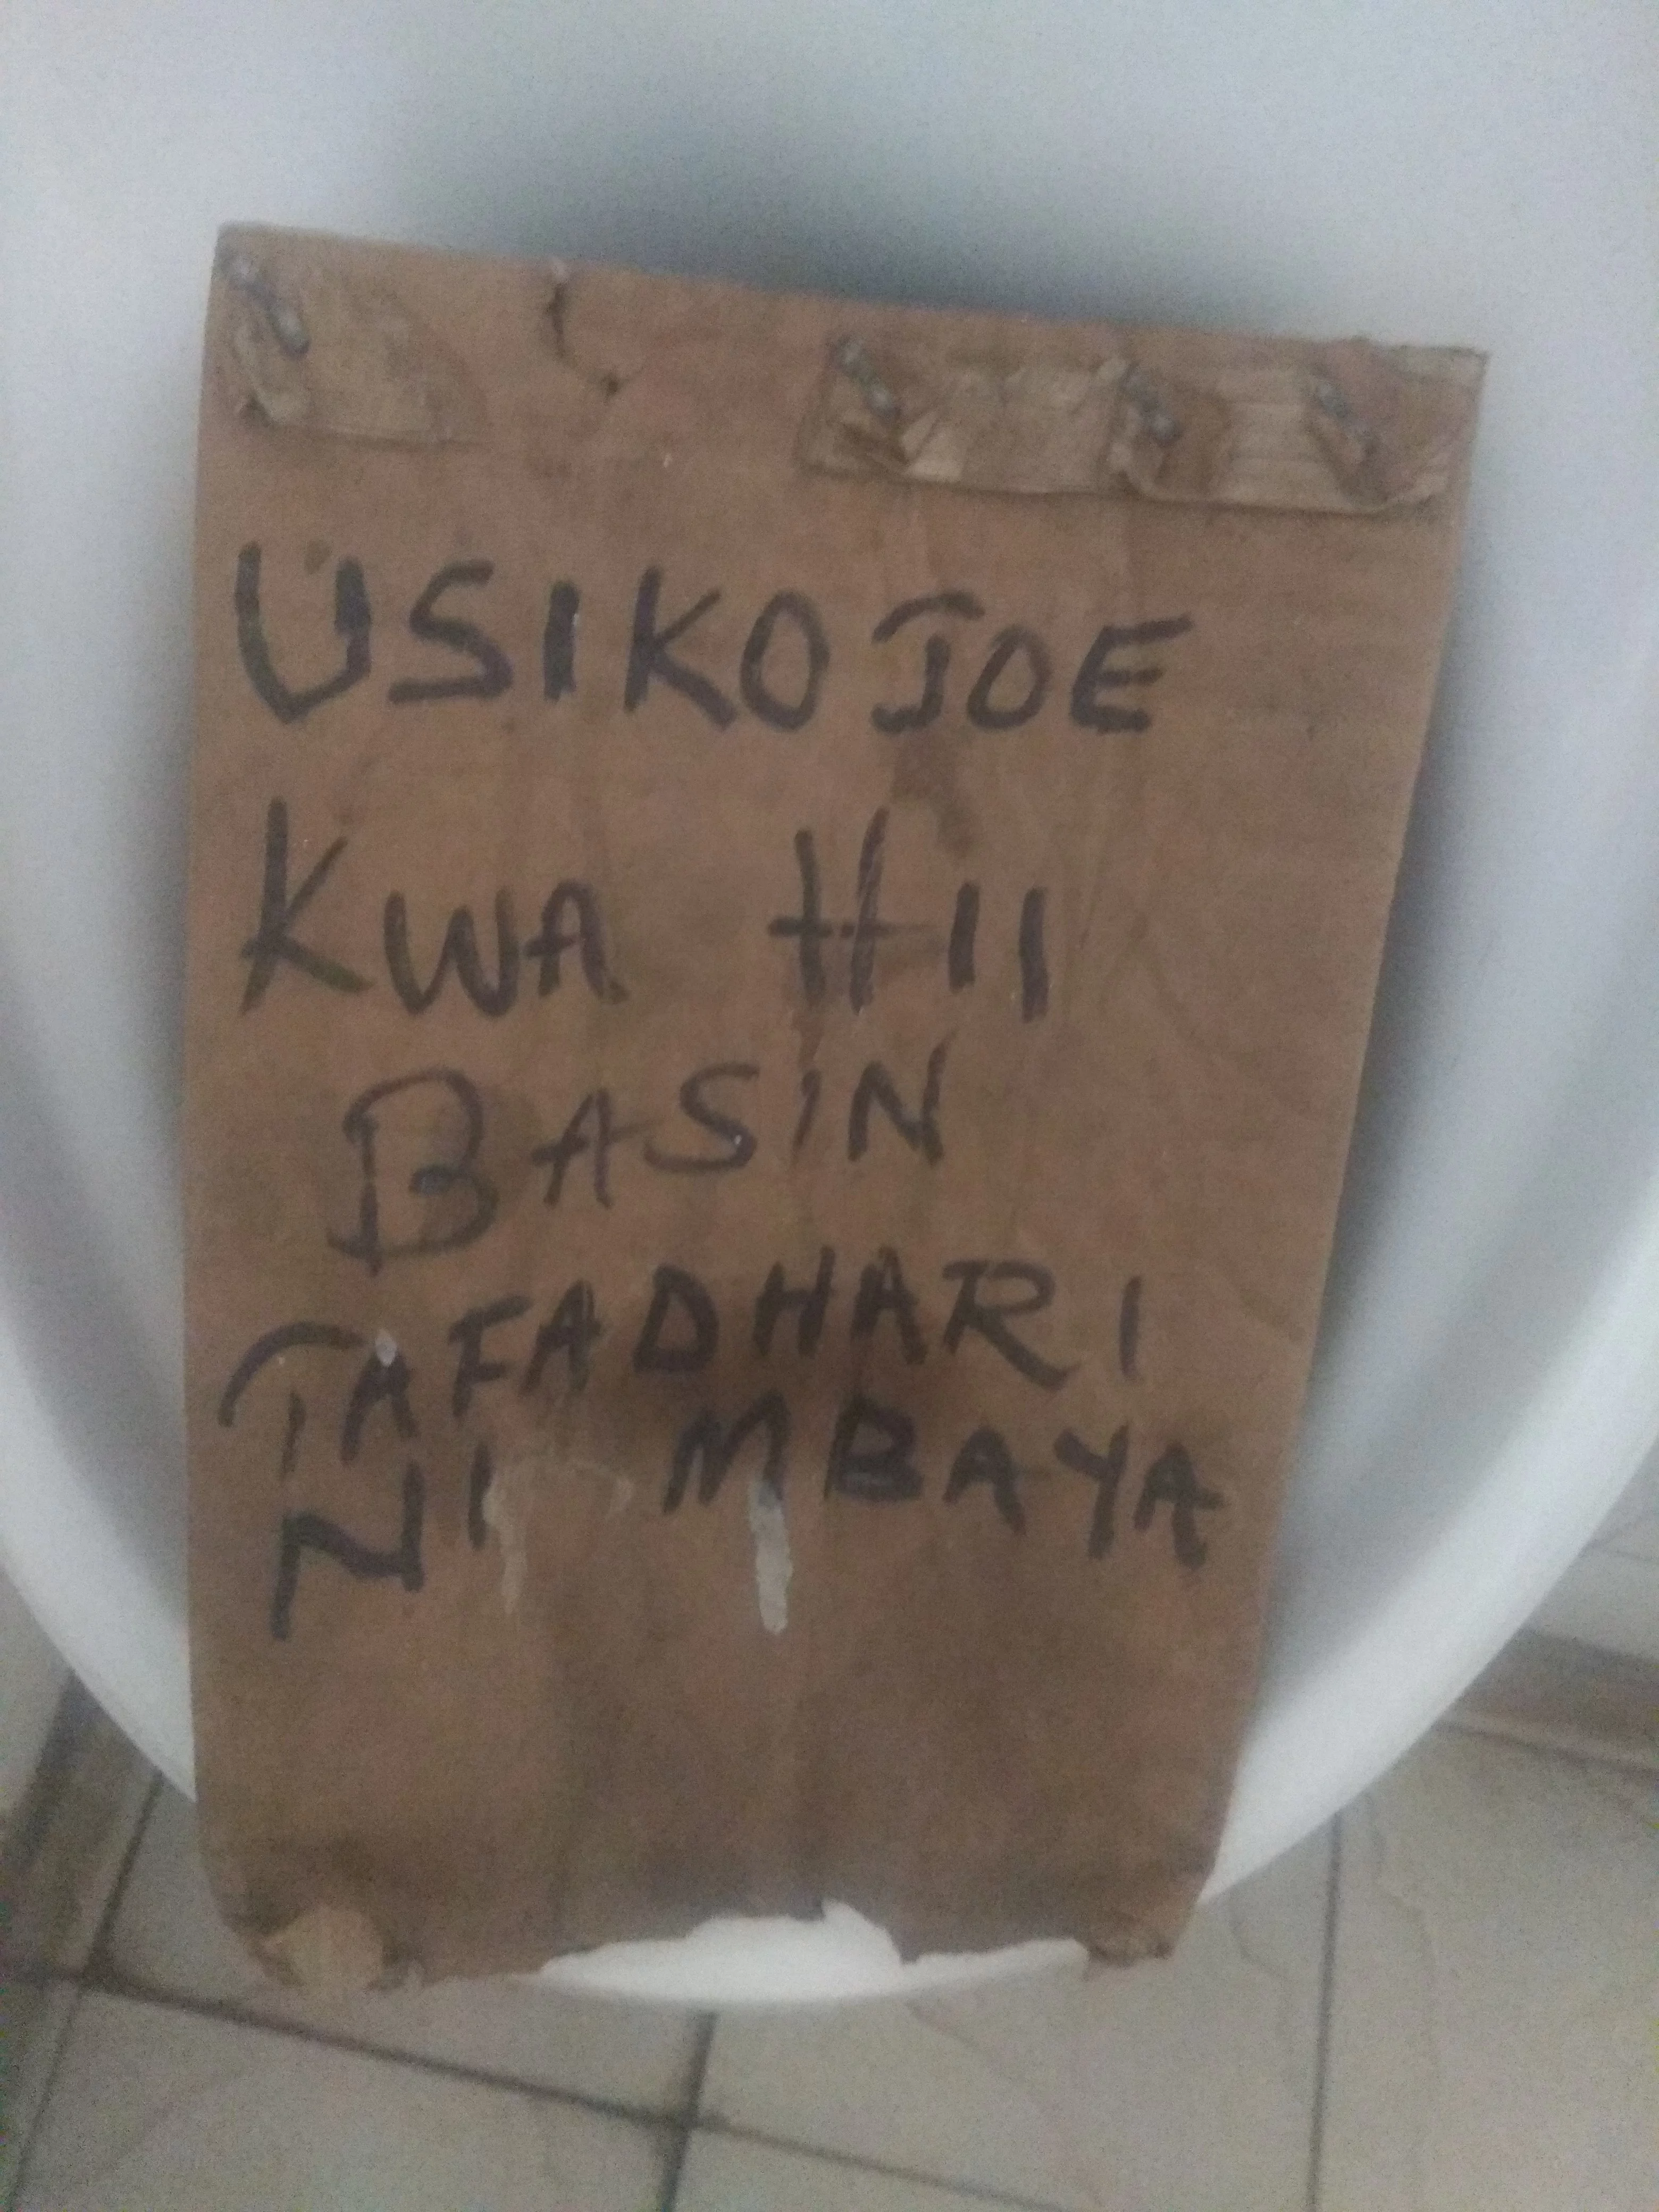 USIKOJOE
KWA HII
BASIN
TAFADHARI
NI MBAYA